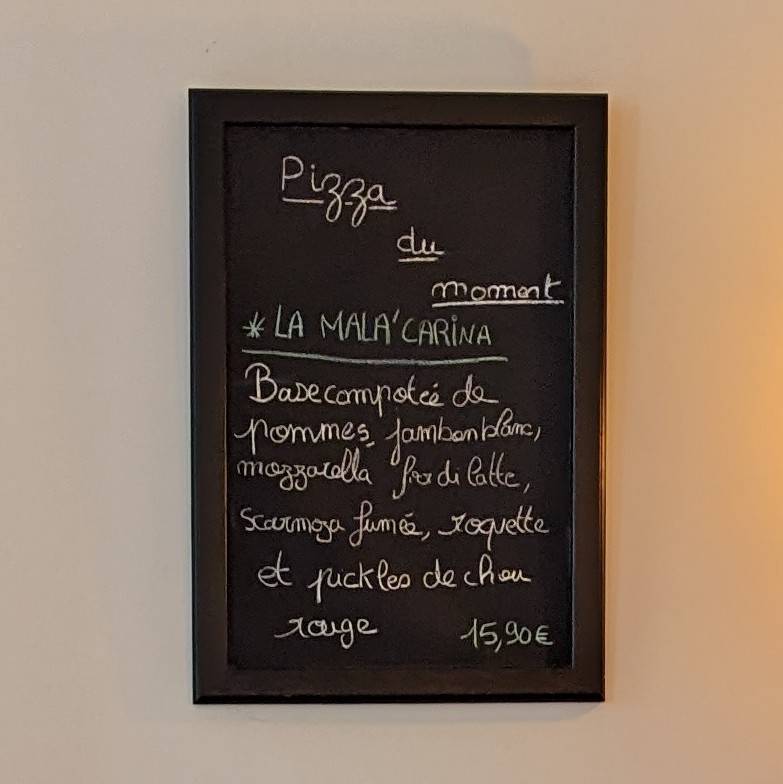 Pizza
du
moment
* LA MALA'CARINA
Base compotée de
pommes, jambon blanc,
mozzarella fior di latte,
scarmoza fumée, roquette
et pickles de chou
rouge 15,90€